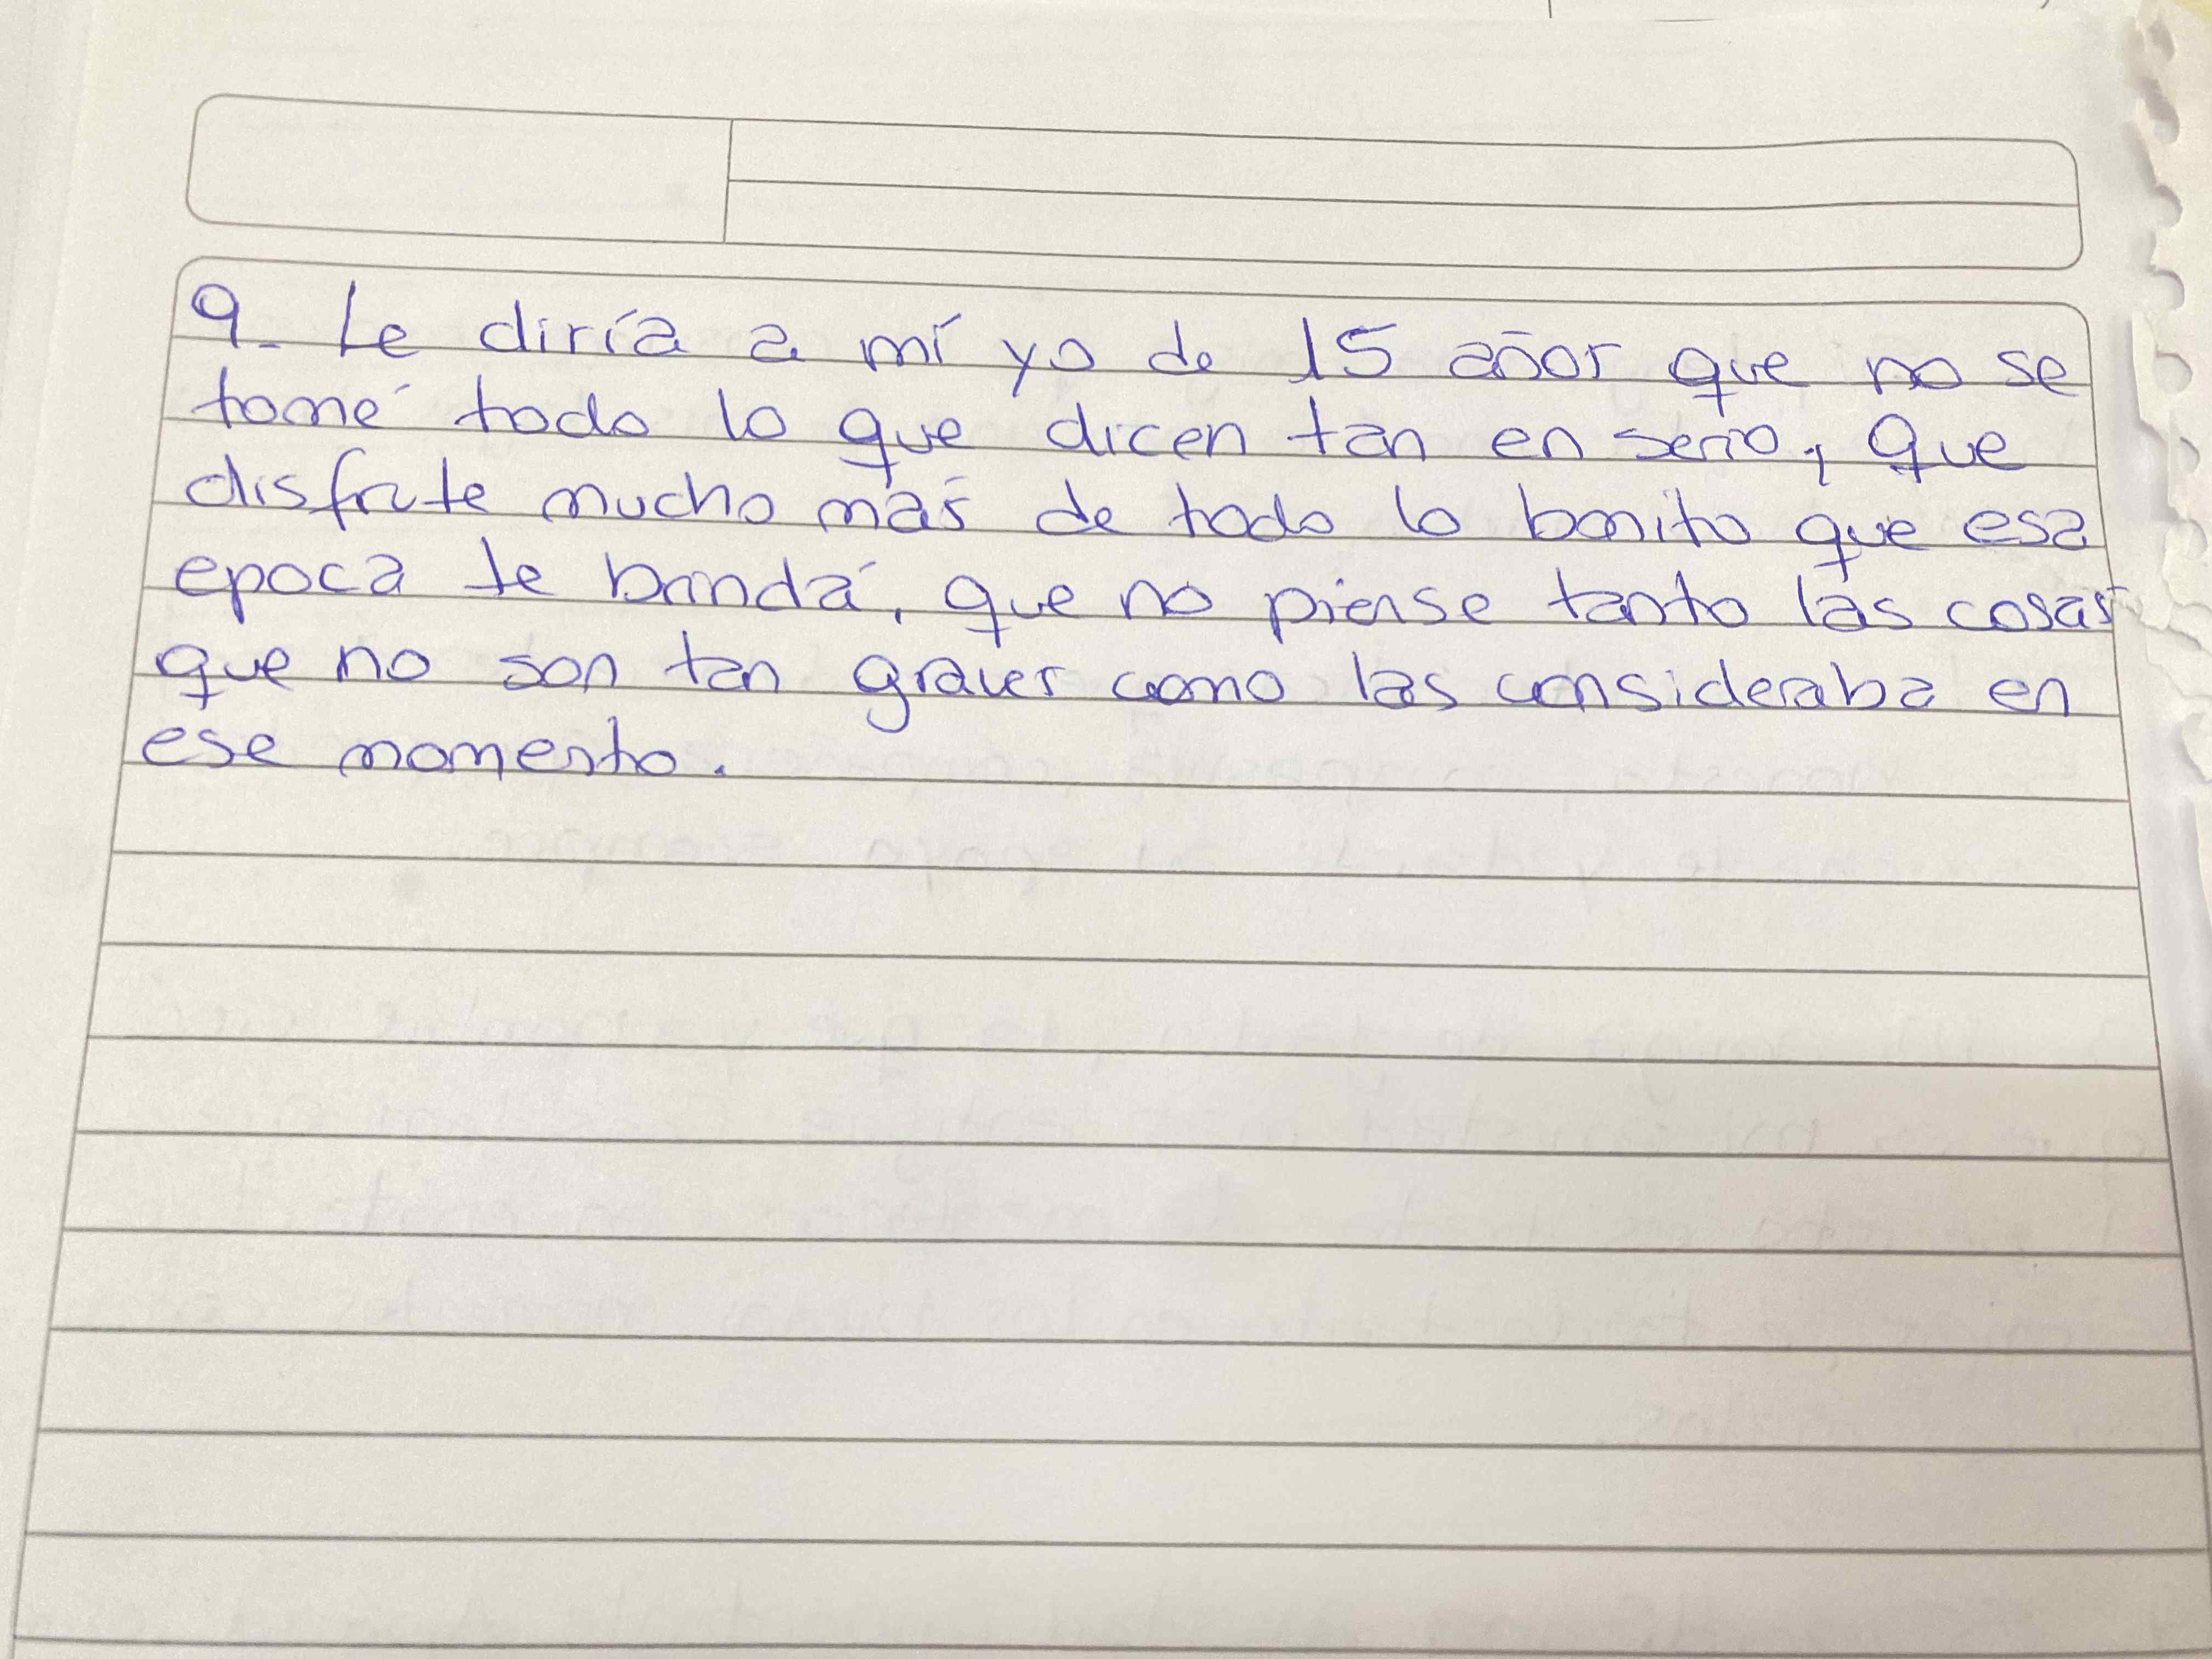 9- Le diría a mí yo de 15 años que no se
tomé todo lo que dicen tan en serio, que
disfrute mucho más de todo lo bonito que esa
epoca te brinda, que no piense tanto las cosas
que no son tan graves como las consideraba en
ese momento.